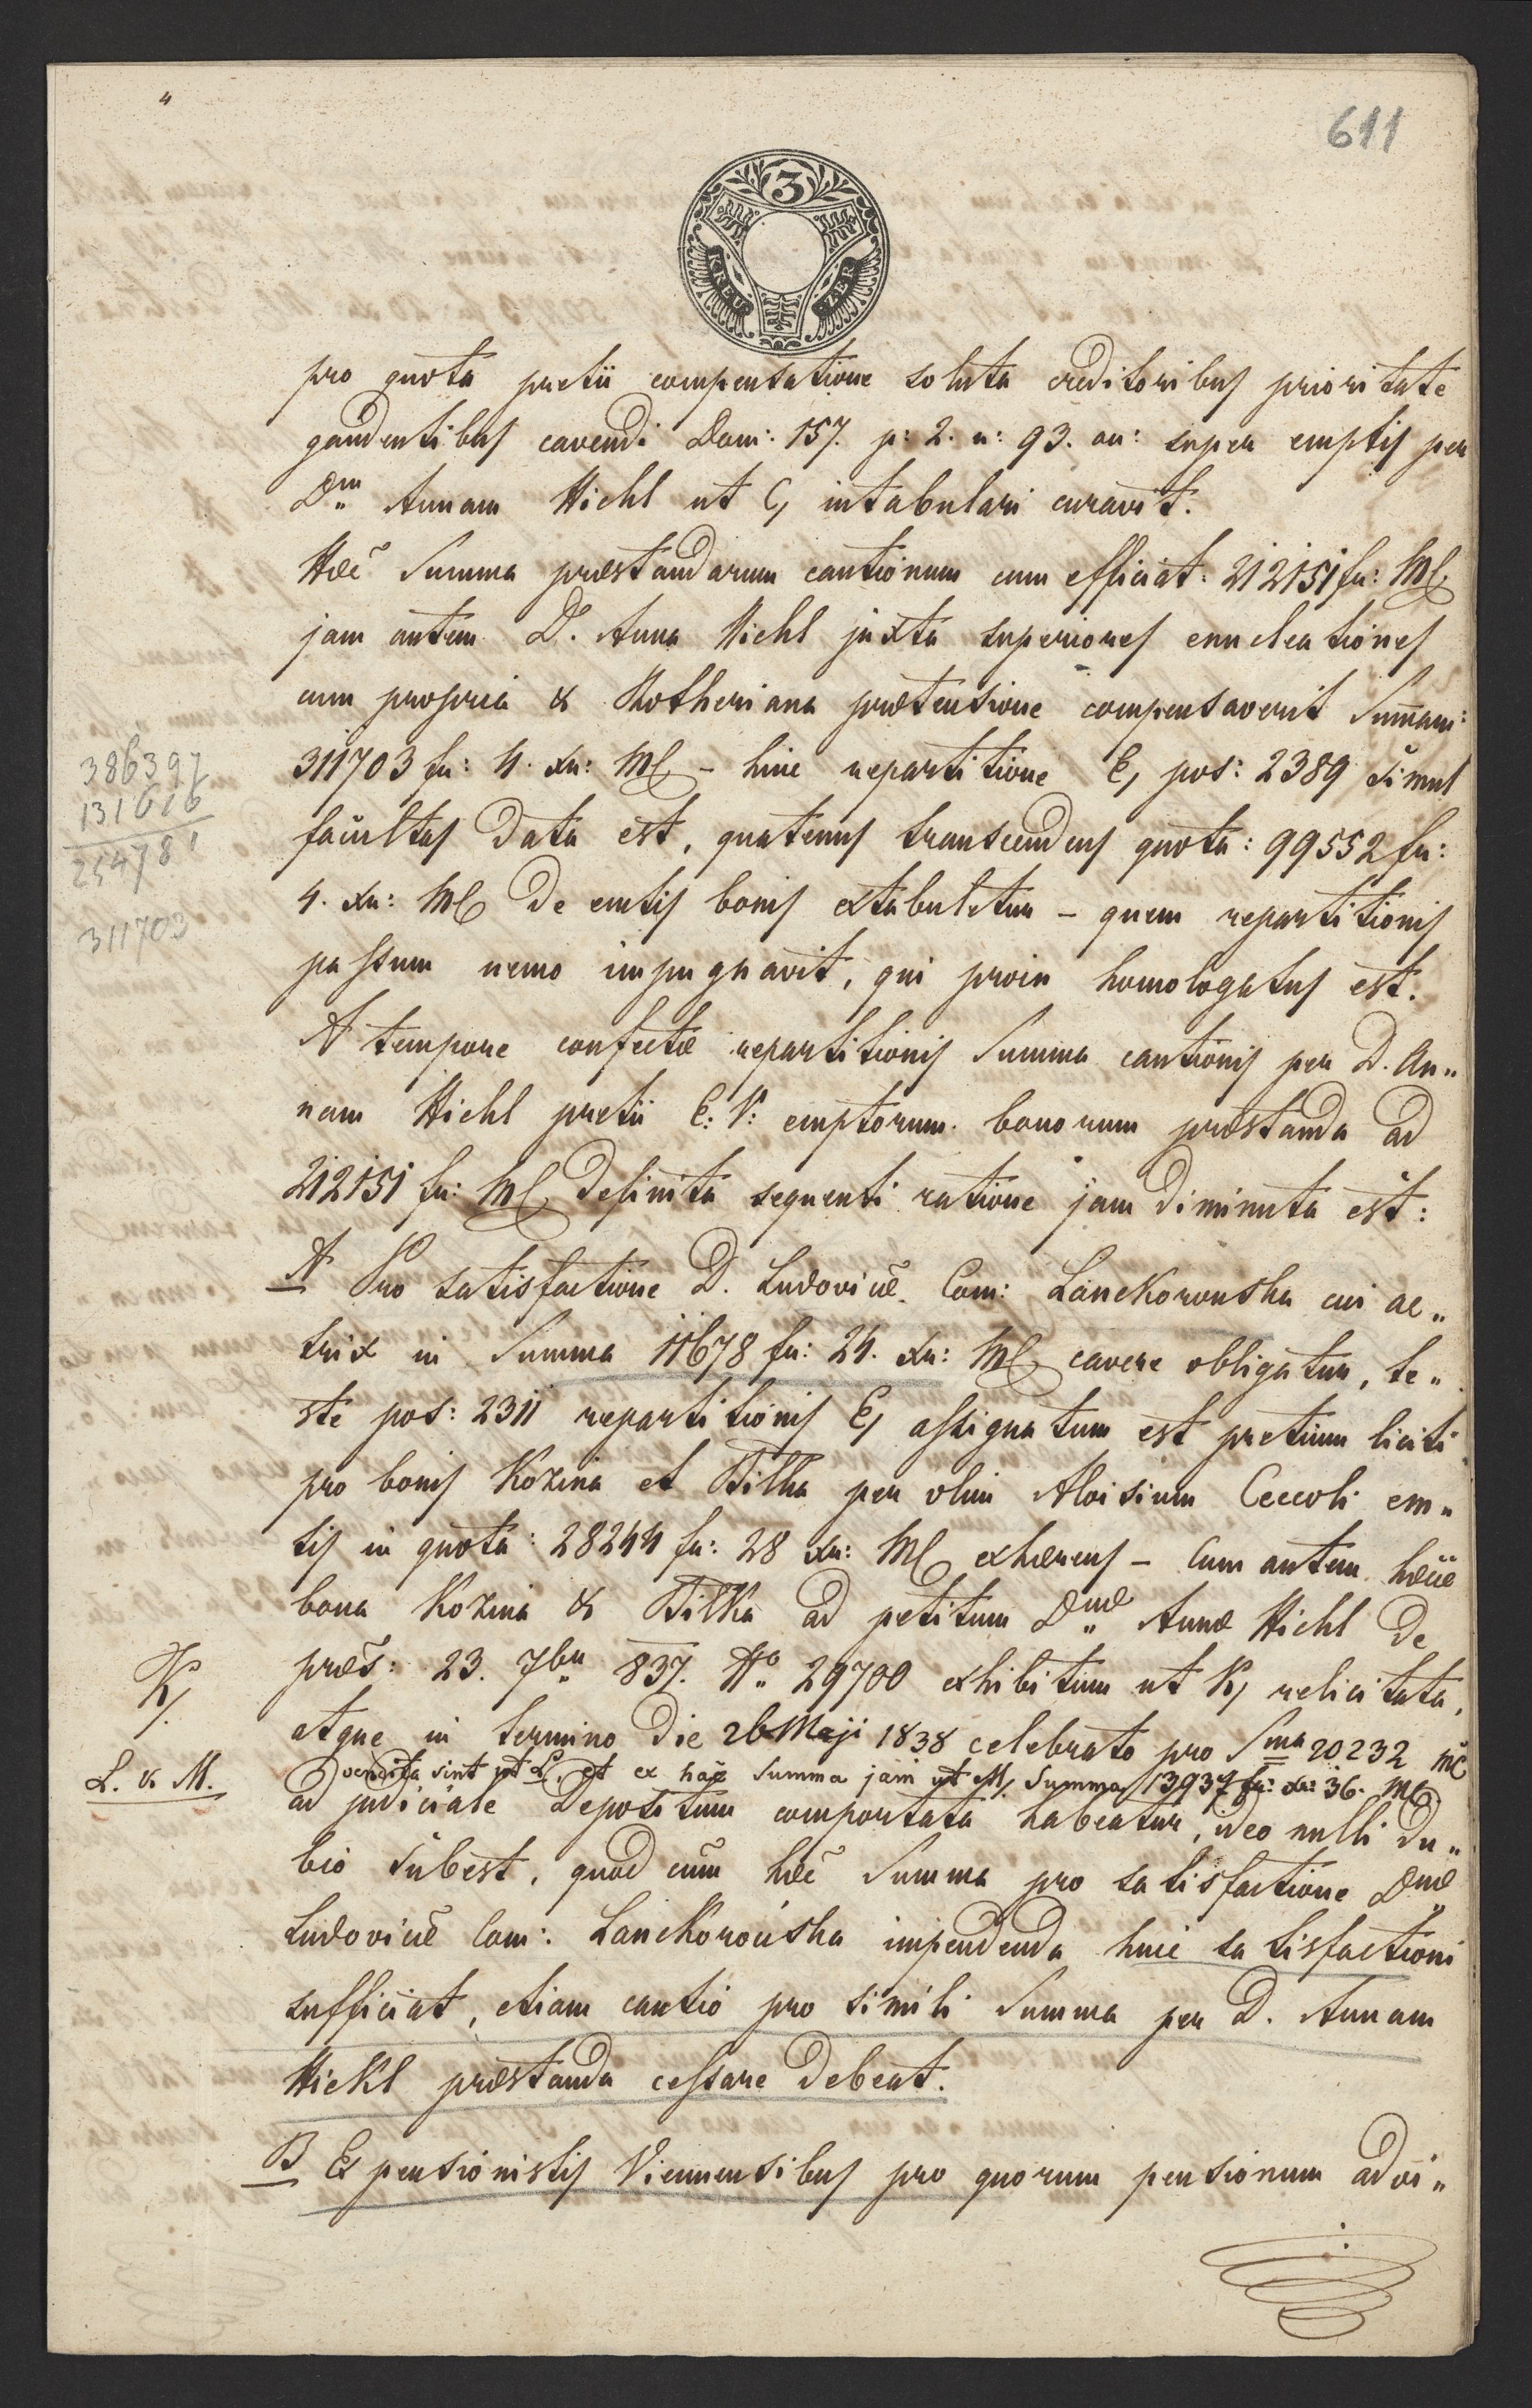 611
3
KREUZER
pro quota pretii compensatione soluta creditoribus prioritate
gaudentibus cavendi Dom: 157. p: 2. n: 93. on: super emptis per
Dm Annam Hickl ut G, intabulari curavit.
Hæc Summa præstandarum cautionum cum efficiat: 212151 fr: MC
jam autem D. Anna Hickl juxta superiores enucleationes
cum propria & Rotheriana prætensione compensaverit Summam:
311703 fr: 4. xr: MC – hinc repartitione E, pos: 2389 simul
facultas data est, quatenus transcendens quota: 99552 fr:
4. xr: MC de emtis bonis extabuletur – quem repartitionis
passum nemo impugnavit, qui proin homologatus est.
A tempore confectæ repartitionis Summa cautionis per D. An„
nam Hickl pretii E: V: emptorum bonorum præstanda ad
212151 fr: MC definita sequenti ratione jam diminuta est:
A Pro satisfactione D. Ludovicæ Com: Lanckoronska cui ac„
trix in Summa 11678 fr: 24. xr: MC cavere obligatur, te„
ste pos: 2311 repartitionis E, assignatum est pretium liciti
pro bonis Kozina et Bilka per olim Aloisium Ceccoli em„
tis in quota: 28244 fr: 28 xr: MC exhærens – Cum autem hæce
bona Kozina & Bilka ad petitum Dnæ Annæ Hickl de
præs: 23. 7br 837. No 29700 exhibitum ut K, relicitata,
atque in termino die 26 Maji 1838 celebrato pro Sma 20232 MC
vendita sint ut L, et ex hac Summa jam ut M, Summa 13937 fr: xr: 36. MC
ad judiciale Depositum comportata habeatur, ideo nulli du„
bio subest, quod cum hæc Summa pro satisfactione Dnæ
Ludovicæ Com: Lanckorońska impendenda huic satisfactioni
sufficiat, etiam cautio pro simili Summa per D. Annam
Hickl præstanda cessare debeat.
B Ex pensionistis Viennensibus pro quorum pensionum advi„
386397
131616
254781
311703
K/.
L. & M.